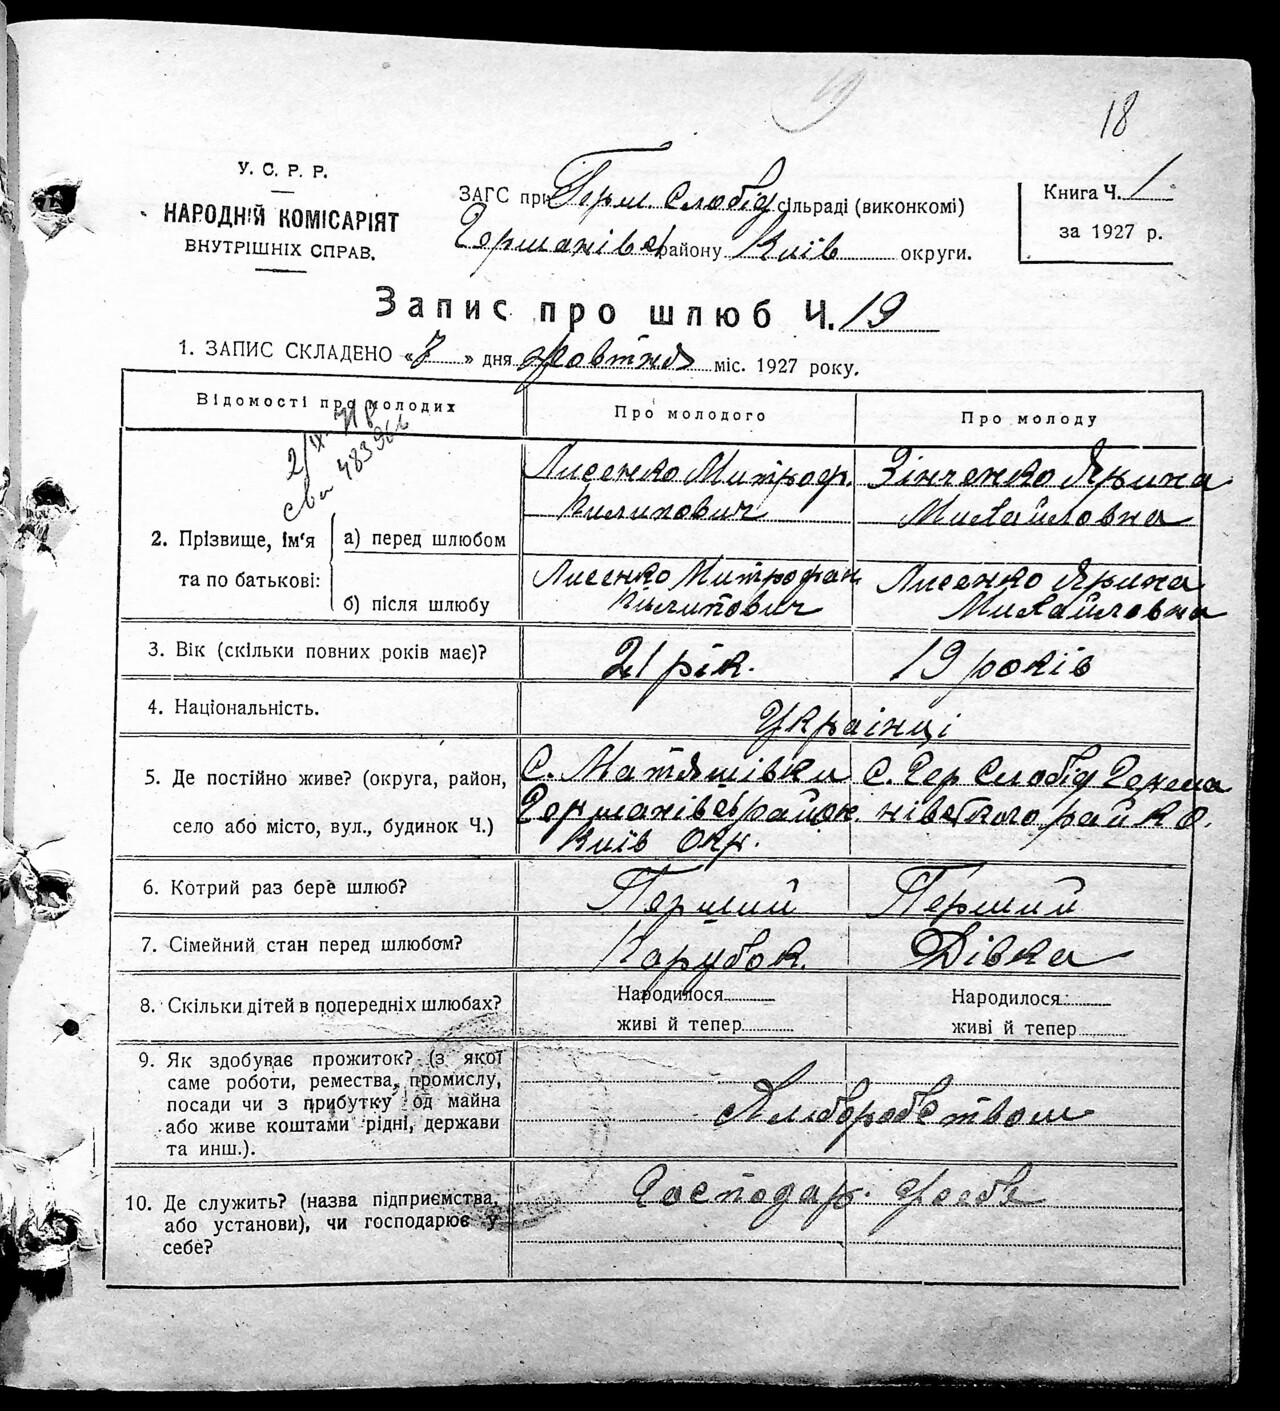 18
У. С. Р. Р.
НАРОДНІЙ КОМІСАРІЯТ
ВНУТРІШНІХ СПРАВ.
ЗАГС при Герм. Слобід сільраді (виконкомі)
Германівс району Київ округи.
Книга Ч. 1
за 1927 р.
Запис про шлюб Ч. 19
1. ЗАПИС СКЛАДЕНО «7» дня Жовтня міс. 1927 року.
Відомості про молодих
Про молодого
Про молоду
2. Прізвище, ім'я та по батькові:
а) перед шлюбом
Лисенко Митроф.
Килипович
Зінченко Ярина
Михайловна
б) після шлюбу
Лисенко Митрофан
Килипович
Лисенко Ярина
Михайловна
3. Вік (скільки повних років має)?
21 рік.
19 років
4. Національність.
Українці
5. Де постійно живе? (округа, район,
село або місто, вул., будинок Ч.)
С. Матяшівки
Германівс район.
Київ Окр.
С. Гер Слобід Герма
нівського рай К О.
6. Котрий раз бере шлюб?
Перший
Перший
7. Сімейний стан перед шлюбом?
Парубок.
Дівка
8. Скільки дітей в попередніх шлюбах?
Народилося
живі й тепер
Народилося
живі й тепер
9. Як здобуває прожиток? (з якої
саме роботи, ремества, промислу,
посади чи з прибутку од майна
або живе коштами рідні, держави
та инш.).
Хліборобством
10. Де служить? (назва підприємства,
або установи), чи господарює у
себе?
Господар. у себе